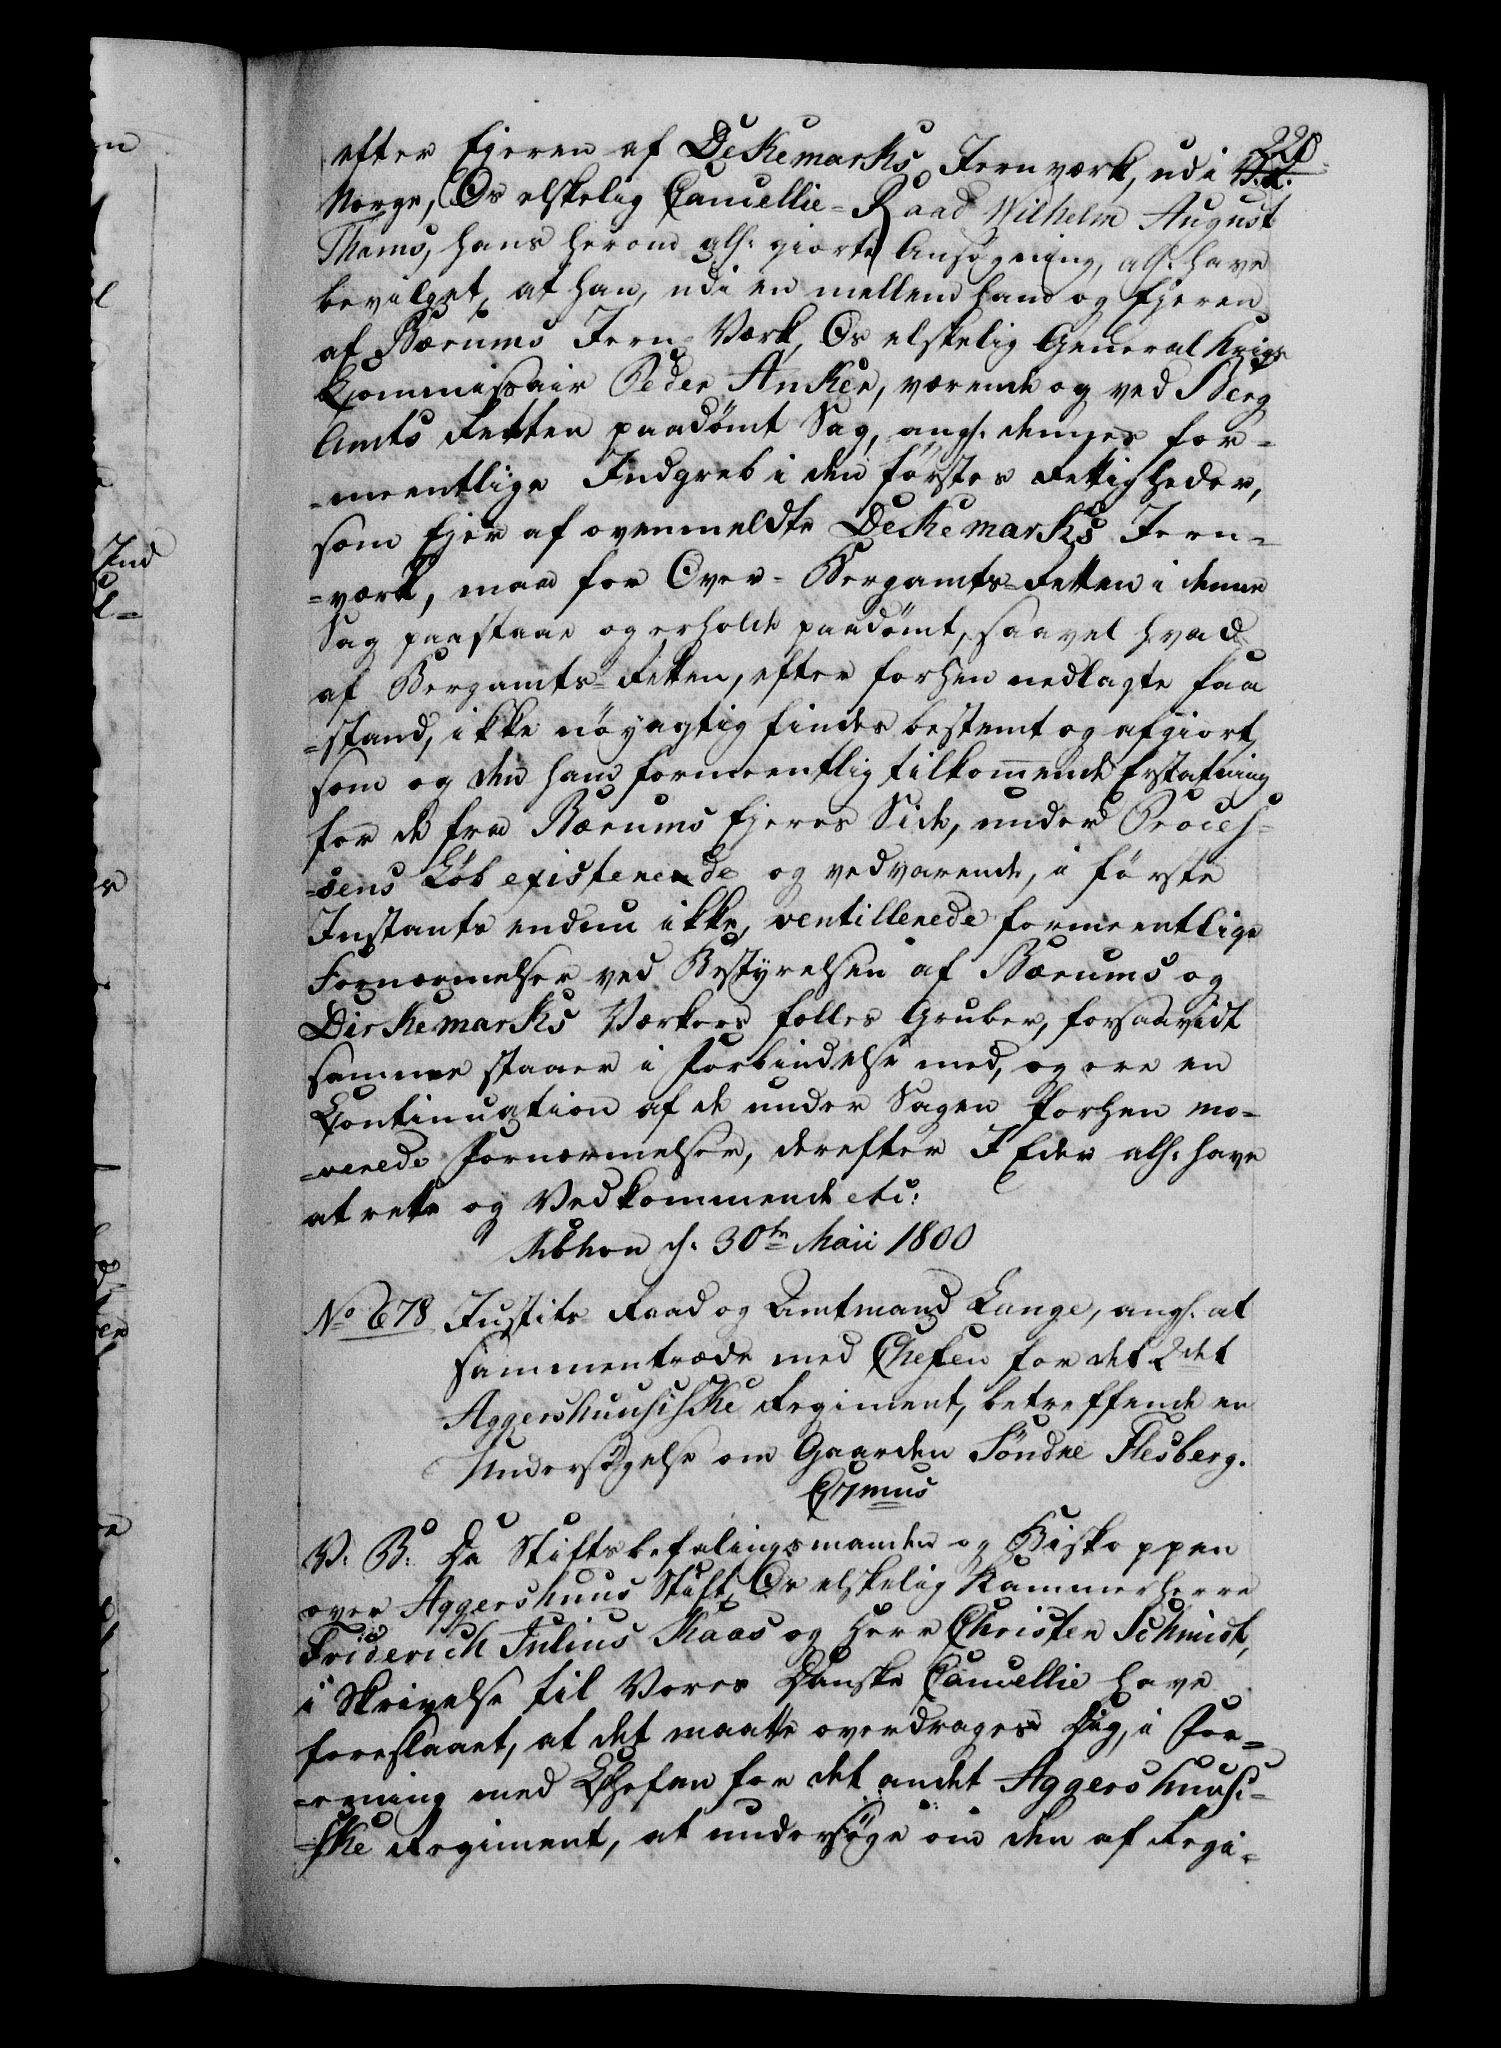 220
efter Ejeren af Dekemarks Jernværk, udi V. R.
Norge, Os elskelig Cancellie-Raad Wilhelm August
Thams, hans herom alh: giorte Ansøgning, alh: have
bevilget, at han, udi en mellem ham og Ejeren
af Bærums Jern-Værk, Os elskelig General Krigs
Kommissair Peder Anker, værende og ved Berg
Amts Retten paadömt Sag, angh: denes for-
-meentlige Indgreb i den förstes Rettigheder,
som Ejer af ovenmeldte Dekemarks Jern-
=værk, maa for Over-Bergamts-Retten i denne
Sag paastaae og erholde paadömt, saavel hvad
af Bergamts-Retten, efter forhen nedlagte Paa
=stand, ikke nöyagtig findes bestemt og afgiort,
som og den ham formeentlig tilkomende Erstatning
for de fra Bærums Ejeres Side, under Proces-
-sens Löb existerende og vedvarende, i förste
Instants endnu ikke, ventillerede formeentlige
Fornærmelser ved Bestyrelsen af Bærums og
Dirkemarks Værkers fælles Gruber, forsaavidt
samme staaer i Forbindelse med, og ere en
Continuation af de under Sagen forhen mo-
-verede Fornærmelser, derefter I Eder alh: have
at rette og Vedkommende etc:
Kbhvn d. 30te Maii 1800
No 678 Justits Raad og Amtmand Lange, angh. at
sammentræde med Chefen for det 2det
Aggershuusiske Regiment, betreffende en
Undersögelse om Gaarden Söndre Flesberg.
C 7mus
V: B: Da Stiftsbefalingsmanden og Biskoppen
over Aggershuus Stift, Os elskelig Kammerherre
Friderich Julius Kaas og Herr Christen Schmidt,
i Skrivelse til Vores Danske Cancellie have
foreslaaet, at det maatte overdrages Dig, i For-
-ening med Chefen for det andet Aggershuusi-
-ske Regiment, at undersöge om den af Regi-